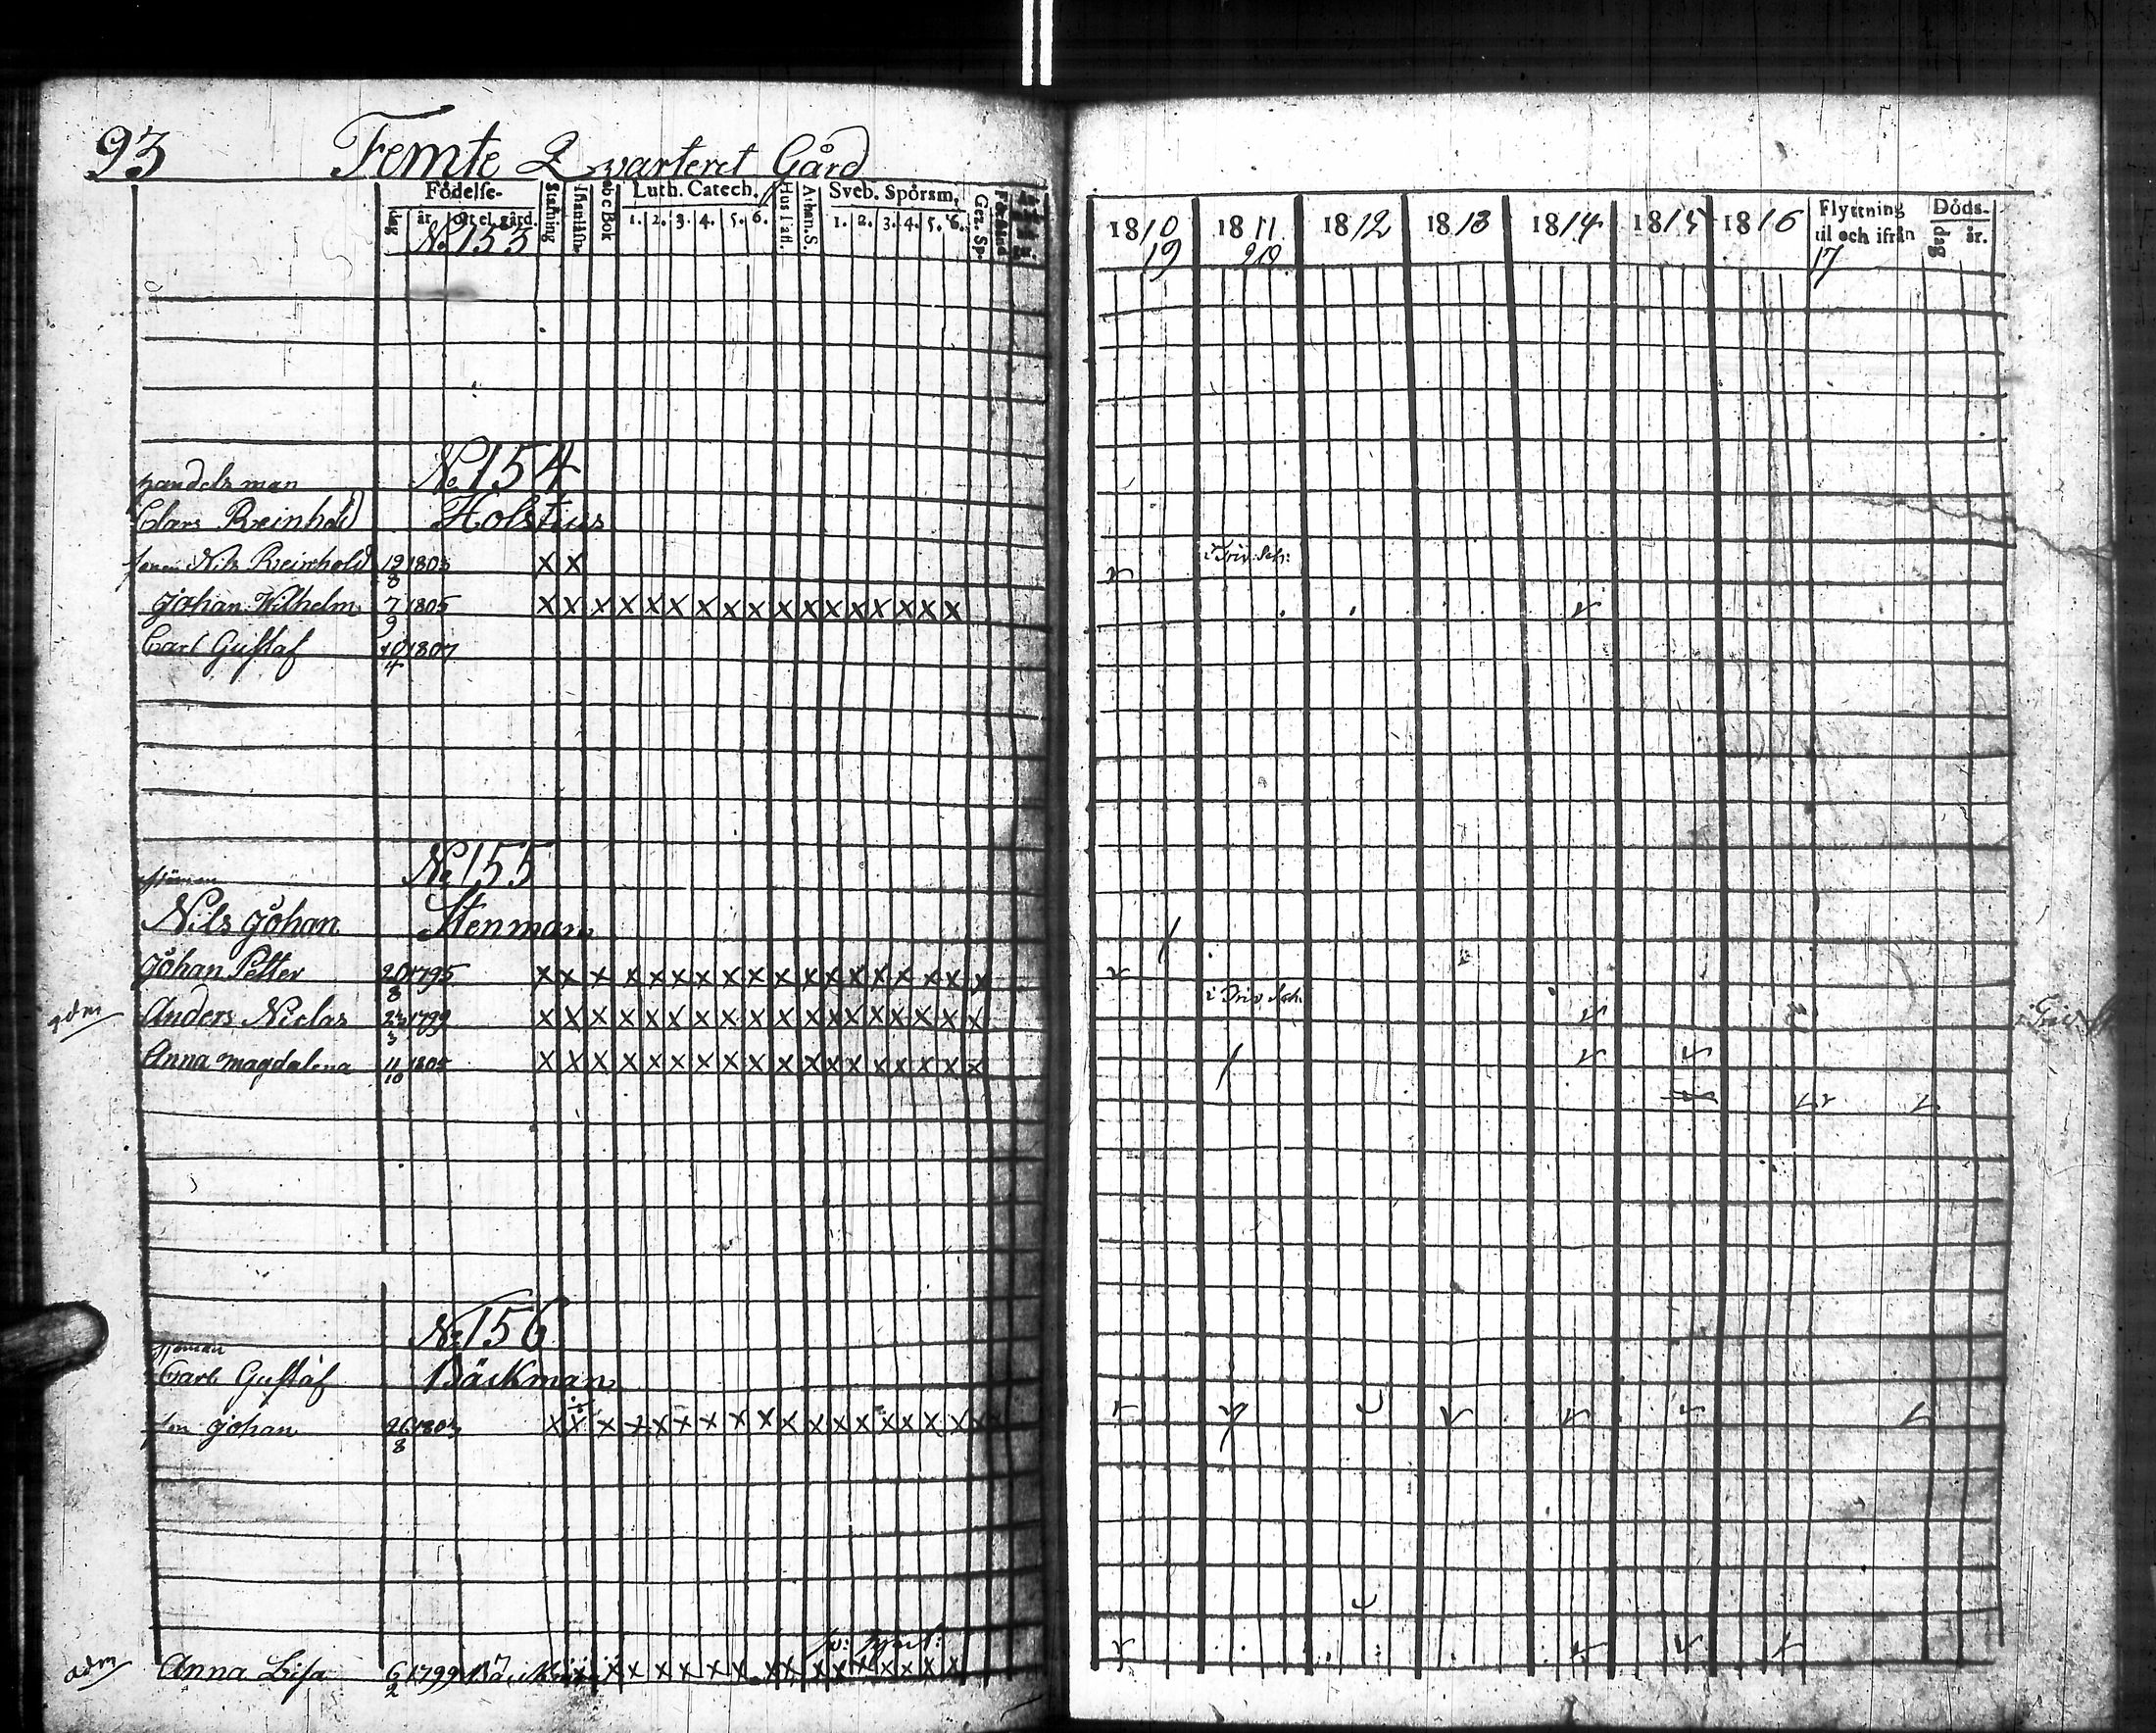 93 Femte Qvarteret Gård
Födelse- dag år ort el. gård. Stafning Innanläsn. abc Bok Luth. Catech. 1. 2. 3. 4. 5. 6. Husltafl. Athan. S. Sveb. Spörsm. 1. 2. 3. 4. 5. 6. Gez. Sp. Förstånd
1810 1811 1812 1813 1814 1815 1816 Flyttning til och ifrån Döds- dag år.
No 153
19 20 17
No 154
handels man
Claes Reinhold Holstius
sonen Nils Reinhold 19/8 1803 x x i Triv. Sch:
Johan Wilhelm 7/9 1805 x x x x x x x x x x x x x x x x x
Carl Gustaf 10/4 1807
No 155
Nils Johan Stenman
Johan Petter 20/8 1795 x x x x x x x x x x x x x x x x x x
adm Anders Niclas 24/3 1799 x x x x x x x x x x x x x x x x x x i Triv. Sch. i Triv.
Anna Magdalena 11/10 1805 x x x x x x x x x x x x x x x x x x
No 156
Carl Gustaf Bäckman
son Johan 26/8 1803 x x x x x x x x x x x x x x x x x x
adm Anna Lisa 6/2 1799 x x x x x x x x x x x x x x